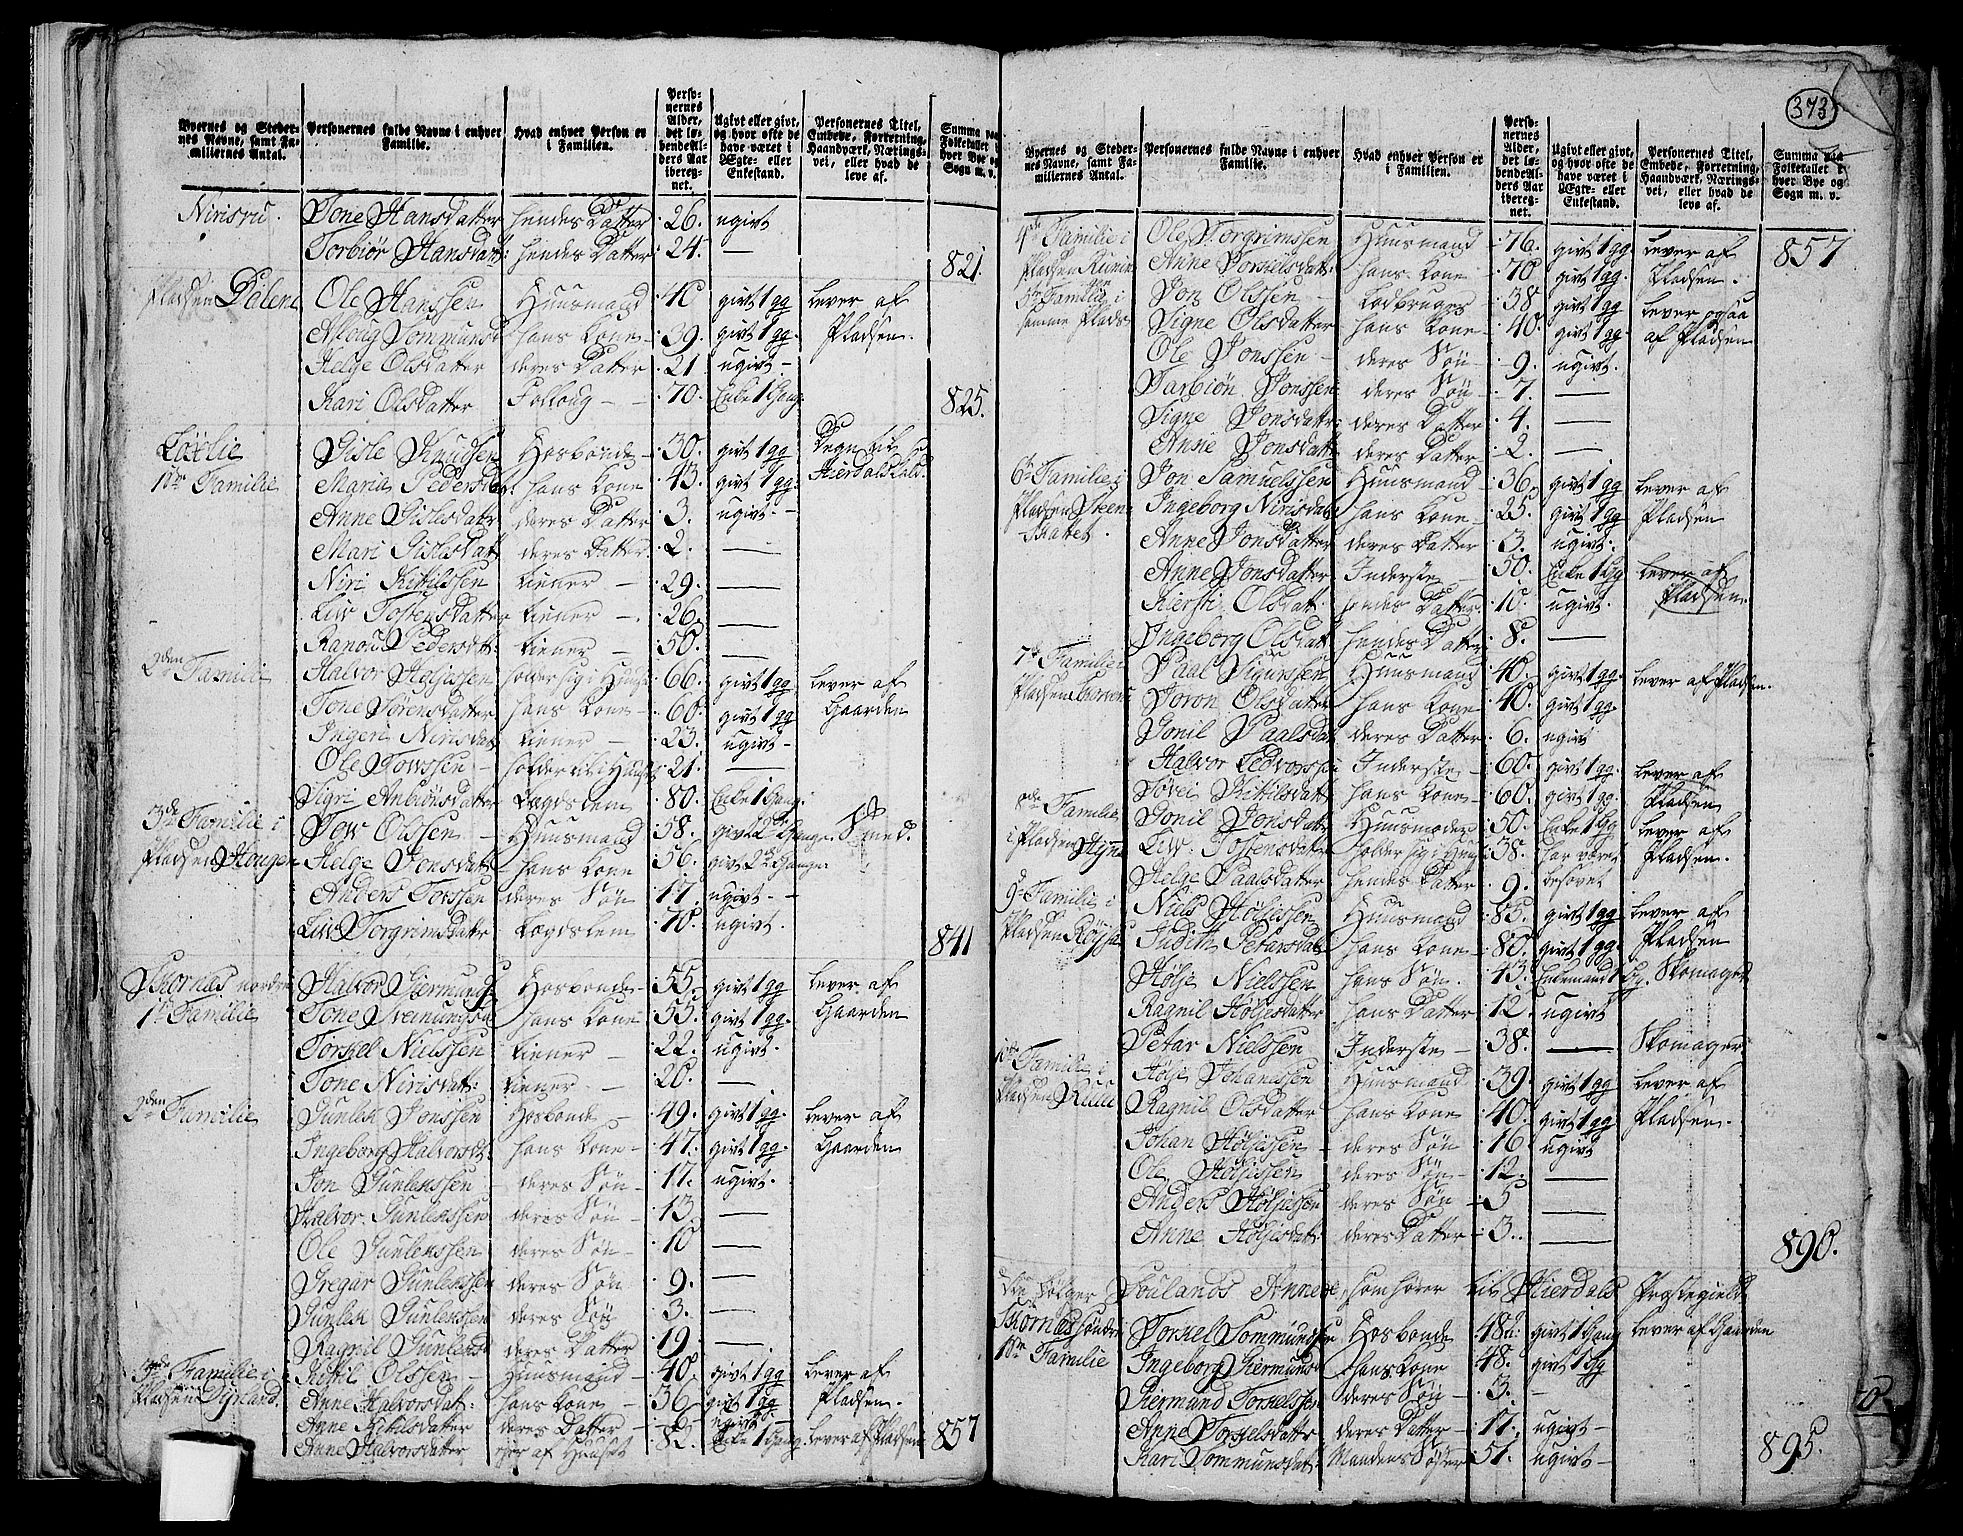 373
Byernes og Stedernes Navne, samt Familiernes Antal. | Personernes fulde Navne i enhver Familie. | Hvad enhver Person er i Familien. | Personernes Alder, det løbende Alders Aar iberegnet. | Ugivt eller givt, og hvor ofte de have været i Ægte- eller Enkestand. | Personernes Titel, Embede, Forretning, Haandværk, Næringsvei, eller hvad de leve af. | Summa paa Folketallet i hver Bye og Sogn m. v.
Nirisrud. Tone Hansdatter hendes Datter 26. ugivt
Torbiør Hansdatt: hendes Datter 24. — 821.
Pladsen Ole Hanssen Huusmand 40 givt 1 gg lever af
Asloug hans Kone 39. givt 1 gg Pladsen.
Helge Olsdatter deres Datter 21 ugivt
Kari Olsdatter Folloug 70. Enke 1 Gang 825.
Gisle Knudsen Hosbonde 30. givt 1 gg Degn til
1te Familie Maria Pedersdt: hans Kone 43. givt 1 gg Hierdals Kald
Anne Gislesdatr deres Datter 3. ugivt
Mari Gislesdat deres Datter 2. —
Niri Kittilssen tiener 29. —
Liw Tostensdatter tiener 26. —
Pedersdtt: tiener 50. —
2den Familie Halvor Holjessen holder sig i Huus 66. givt 1 gg lever af
Tone Sørensdatter hans Kone 60. givt 1 gg Gaarden
Ingeri Nirisdat tiener 23. ugivt
Ole Towssen holder til i Huuset 21. —
Sigri Anbiønsdatter Lægdslem 80. Enke 1 Gang
3de Familie i Tow Olssen Huusmand 58. givt 2de Gange Smed.
Pladsen Haugen Helge Jonsdatt hans Kone 56. givt 2de Gange
Anders Towssen deres Søn 17. ugivt
Liw Torgrimsdatter Lægdslem 70. ugivt. 841
Skornæs nordre Halvor Giermunds Hosbonde 55. givt 1 gg lever af
1te Familie Tone Sveinungsda hans Kone 55. givt 1 gg. Gaarden
Torkel Nielssen tiener 22. ugivt.
Tone Nirisdatt: tiener 20. —
2den Familie Gunlek Jonssen Hosbonde 49. givt 1 gg. lever af
Ingeborg Halvorsdt. hans Kone 47. givt 1 gg. Gaarden
Jon Gunlekssen deres Søn 17. ugivt.
Halvor Gunlekssen deres Søn 13 —
Ole Gunlekssen deres Søn 10 —
Gregar Gunlekssen deres Søn 9. —
Gunlek Gunlekssen deres Søn 3. —
Ragnil Gunleksd deres Datter 19. —
3de Familie i Kittil Olssen Huusmand 40. givt 1 gg lever af
Pladsen Anne Halvorsdatt: hans Kone 36 givt 1 gg Pladsen.
Anne Kittilsdatter deres Datter 6. ugivt
Anne Halvorsdatter af Huuset 82. Enke 1 Gang lever af Pladsen 857
Byernes og Stedernes Navne, samt Familiernes Antal. | Personernes fulde Navne i enhver Familie. | Hvad enhver Person er i Familien. | Personernes Alder, det løbende Alders Aar iberegnet. | Ugivt eller givt, og hvor ofte de have været i Ægte- eller Enkestand. | Personernes Titel, Embede, Forretning, Haandværk, Næringsvei, eller hvad de leve af. | Summa paa Folketallet i hver Bye og Sogn m. v.
4de Familie i Ole Torgrimssen Huusmand 76. givt 1 gg lever af 857
Pladsen Anne Torkelsdatt: hans Kone 70 givt 1 gg. Pladsen.
5te Familie i Jon Olssen 38 givt 1 gg lever ogsaa
samme Plads Signe Olsdatter hans Kone 40. givt 1 gg. af Pladsen
Ole Jonssen deres Søn 9. ugivt.
Tarbiøn Jonssen deres Søn 7. —
Signe Jonsdatter deres Datter 4. —
Anne Jonsdatt deres Datter 2. —
6te Familie i Jon Samuelssen Huusmand 36. givt 1 gg lever af
Pladsen Steen Ingeborg Nirisdat hans Kone 25. givt 1 gg Pladsen
Anne Jonsdatter deres Datter 3. ugivt.
Anne Jonsdatter Inderste 50. Enke 1 Gg lever af
Kiersti Olsdatt. hendes Datter 10. ugivt Pladsen
Ingeborg Olsdatt hendes Datter 8. —
7de Familie i Paal Sigurssen Huusmand 40. givt 1 gg. lever af Pladsen.
Pladsen Joron Olsdatter hans Kone 40. givt 1 gg.
Gonil Paalsdat deres Datter 6. ugivt
Halvor Inderste 60. givt 1 gg. lever af
Kittilsdatt hans Kone 60. givt 1 gg. Pladsen
8de Familie Gonil Jonsdatt Huusmoder 50. Enke 1 Gg lever af
i Pladsen Liw Tostensdatter holder sig i Huus 38. har været Pladsen.
Helge Paalsdatter hendes Datter 9. besovet
9de Familie i Niels Holjessen Huusmand 85. givt 1 gg lever af
Pladsen Røysa Judith Petarsdat hans Kone 80. givt 1 gg. Pladsen
Holje Nielssen hans Søn. 43. Enkemand 1 Gg. Skomager
Ragnil Holjesdatter hans Datter 12. ugivt
Petar Nielssen Inderste 38. — Skomager
10de Familie i Holje Johanssen Huusmand 39. givt 1 gg lever af
Pladsen Ragnil Olsdatter hans Kone 40. givt 1 gg Pladsen.
Johan Holjessen deres Søn 16. ugivt
Ole Holjessen deres Søn 12. —
Anders Holjessen deres Søn 5 —
Anne Holjesdatt deres Datter 3. — 890.
Nu følger Soulands Annexe, som hører til Hierdals Præstegield
Skornæs søndre Torkel Sommundssen Hosbonde 48. givt 1 Gang lever af Gaarden
1te Familie Ingeborg Giermunds hans Kone 48. givt 1 Gg
Giermund Torkelssen deres Søn 3. —
Anne Torkelsdatter deres Datter 17. ugivt
Kari Sommunsdat Mandens Søster 51. ugivt 895.